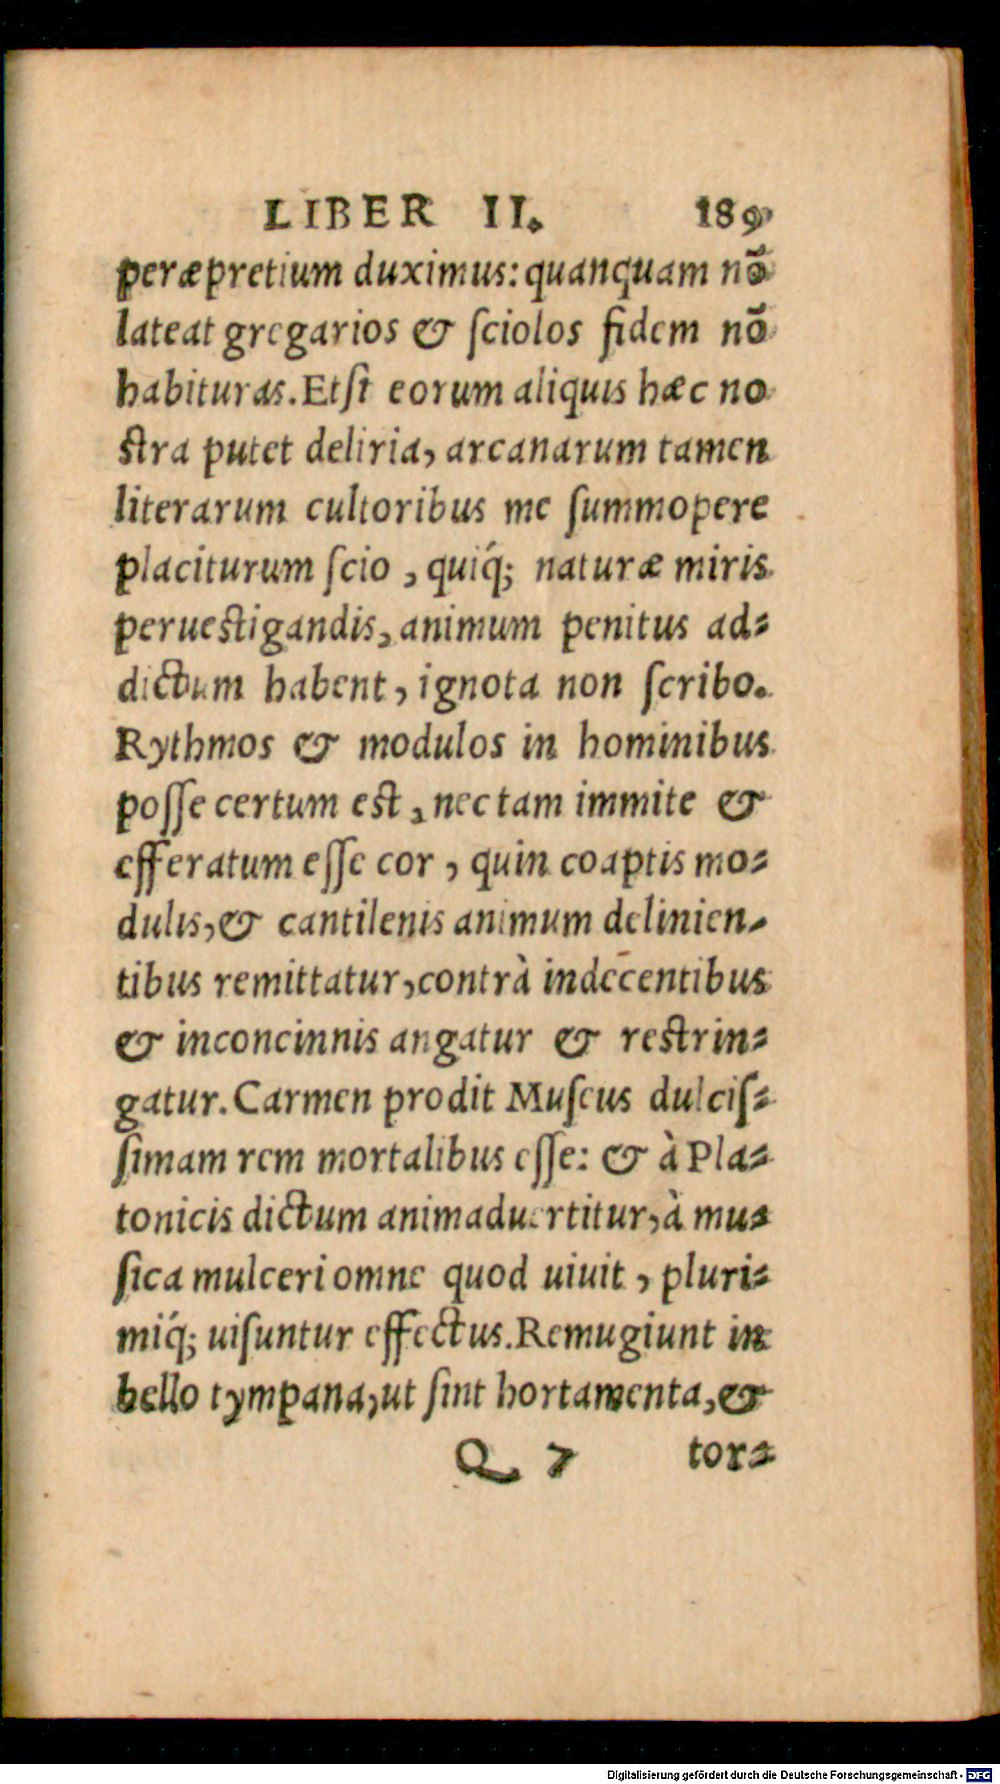 LIBER II. 189
peræpretium duximus: quanquam nō
lateat gregarios & ſciolos fidem nō
habituras. Etſi eorum aliquis hæc no
ſtra putet deliria, arcanarum tamen
literarum cultoribus me ſummopere
placiturum ſcio, quiq́; naturæ miris
perueſtigandis, animum penitus ad⸗
dictum habent, ignota non ſcribo.
Rythmos & modulos in hominibus
poſſe certum eſt, nec tam immite &
efferatum eſſe cor, quin coaptis mo⸗
dulis, & cantilenis animum delinien⸗
tibus remittatur, contrà indecentibus
& inconcinnis angatur & reſtrin⸗
gatur. Carmen prodit Muſeus dulciſ⸗
ſimam rem mortalibus eſſe: & à Pla⸗
tonicis dictum animaduertitur, à mu⸗
ſica mulceri omne quod uiuit, pluri⸗
miq́; uiſuntur effectus. Remugiunt in
bello tympana, ut ſint hortamenta, &
Q 7 tor⸗
Digitalisierung gefördert durch die Deutsche Forschungsgemeinschaft - DFG